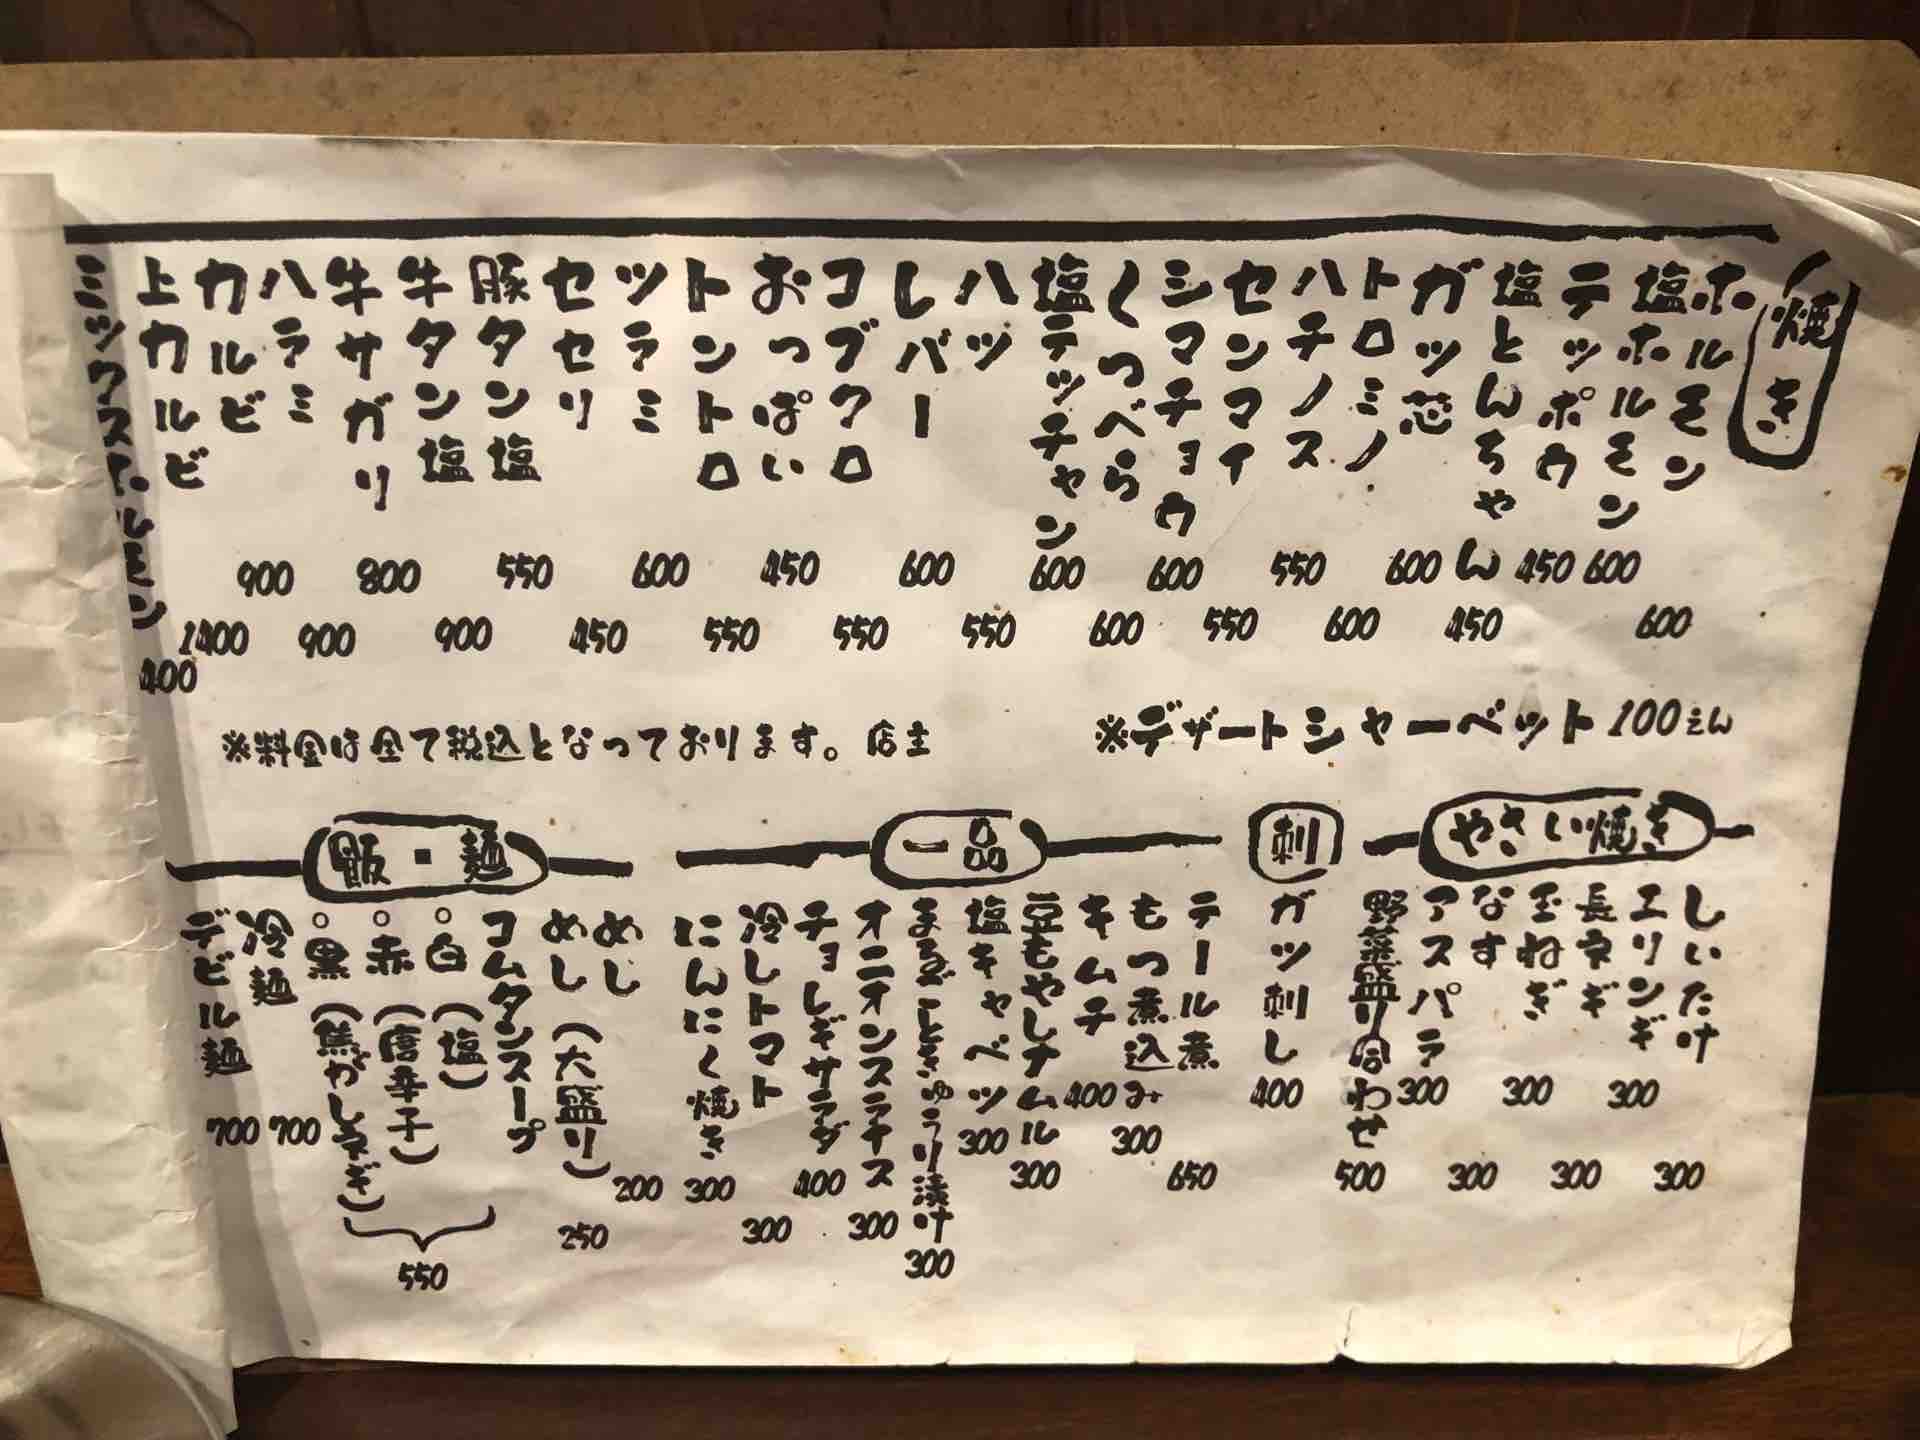 焼き
ホルモン 600
塩ホルモン 600
テッポウ 450
塩とんちゃん 450
ガツ芯 600
トロミノ 600
ハチノス 550
センマイ 550
シマチョウ 600
くつべら 600
塩テッチャン 600
ハツ 550
しバー 600
コブクロ 550
おっぱい 450
トントロ 550
ツラミ 600
セセリ 450
豚タン塩 550
牛タン塩 900
牛サガリ 800
ハラミ 900
カルビ 900
上カルビ 1400
ミックスホルモン 400
※デザートシャーベット 100えん
※料金は全て税込となっております。店主
やさい焼き
しいたけ 300
エリンギ 300
長ネギ 300
玉ねぎ 300
なす 300
アスパラ 300
野菜盛り合わせ 500
刺
ガツ刺し 400
一品
テール煮 650
もつ煮込み 300
キムチ 400
豆もやしナムル 300
塩キャベツ 300
まるごときゅうり漬け 300
オニオンスライス 300
チョレギサラダ 400
冷しトマト 300
にんにく焼き 300
飯・麺
めし 200
めし(大盛り) 250
コムタンスープ
○白(塩)
○赤(唐辛子)
○黒(焦がしネギ)
550
冷麺 700
デビル麺 700